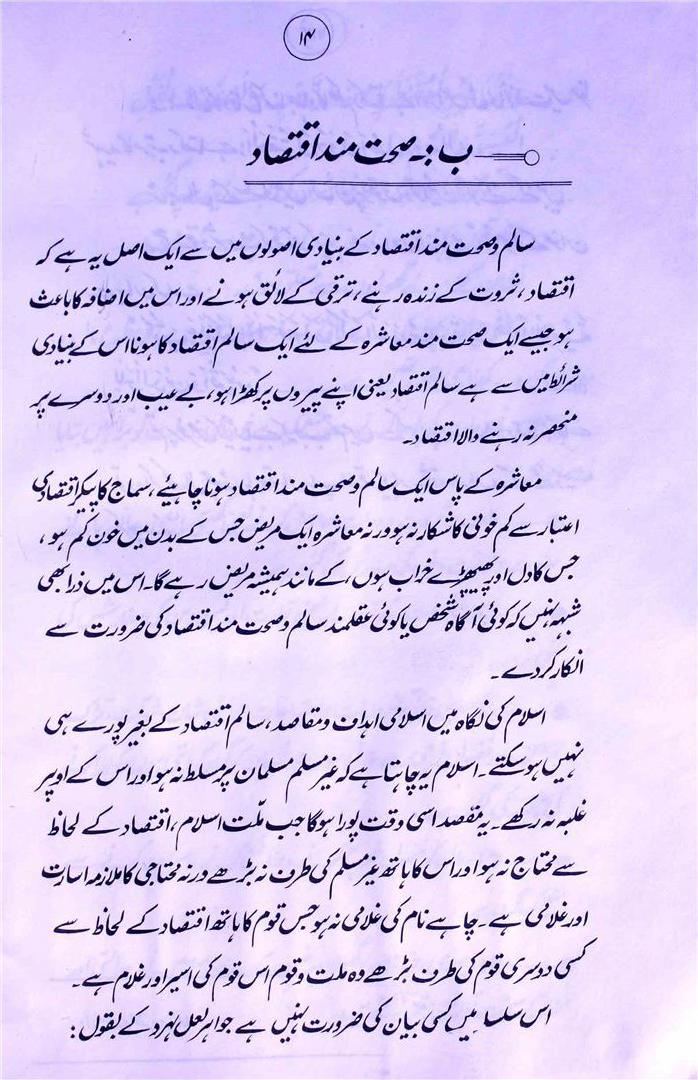 ۱۴
ب :۔ صحت مند اقتصاد
سالم و صحت مند اقتصاد کے بنیادی اصولوں میں سے ایک اصل یہ ہے کہ
اقتصاد ، ثروت کے زندہ رہنے ، ترقی کے لائق ہونے اور اس میں اضافہ کا باعث
ہو جیسے ایک صحت مند معاشرہ کے لئے ایک سالم اقتصاد کا ہونا اس کے بنیادی
شرائط میں سے ہے سالم اقتصاد یعنی اپنے پیروں پر کھڑا ہو ، بے عیب اور دوسرے پر
منحصر نہ رہنے والا اقتصاد ۔
معاشرہ کے پاس ایک سالم و صحت مند اقتصاد ہونا چاہیئے ، سماج کا پیکر اقتصادی
اعتبار سے کم خونی کا شکار نہ ہو ورنہ معاشرہ ایک مریض جس کے بدن میں خون کم ہو ،
جس کا دل اور پھیپھڑے خراب ہوں ، کے مانند ہمیشہ مریض رہے گا ۔ اس میں ذرا بھی
شبہہ نہیں کہ کوئی آگاہ شخص یا کوئی عقلمند سالم و صحت مند اقتصاد کی ضرورت سے
انکار کر دے ۔
اسلام کی نگاہ میں اسلامی اہداف و مقاصد ، سالم اقتصاد کے بغیر پورے ہی
نہیں ہو سکتے ۔ اسلام یہ چاہتا ہے کہ غیر مسلم مسلمان پر مسلط نہ ہو اور اس کے اوپر
غلبہ نہ رکھے ۔ یہ مقصد اسی وقت پورا ہوگا جب ملّت اسلام ، اقتصاد کے لحاظ
سے محتاج نہ ہو اور اس کا ہاتھ غیر مسلم کی طرف نہ بڑھے ورنہ محتاجی کا ملازمہ اسارت
اور غلامی ہے ۔ چاہے نام کی غلامی نہ ہو جس قوم کا ہاتھ اقتصاد کے لحاظ سے
کسی دوسری قوم کی طرف بڑھے وہ ملت و قوم اس قوم کی اسیر اور غلام ہے ۔
اس سلسلہ میں کسی بیان کی ضرورت نہیں ہے جواہر لعل نہرو کے بقول :